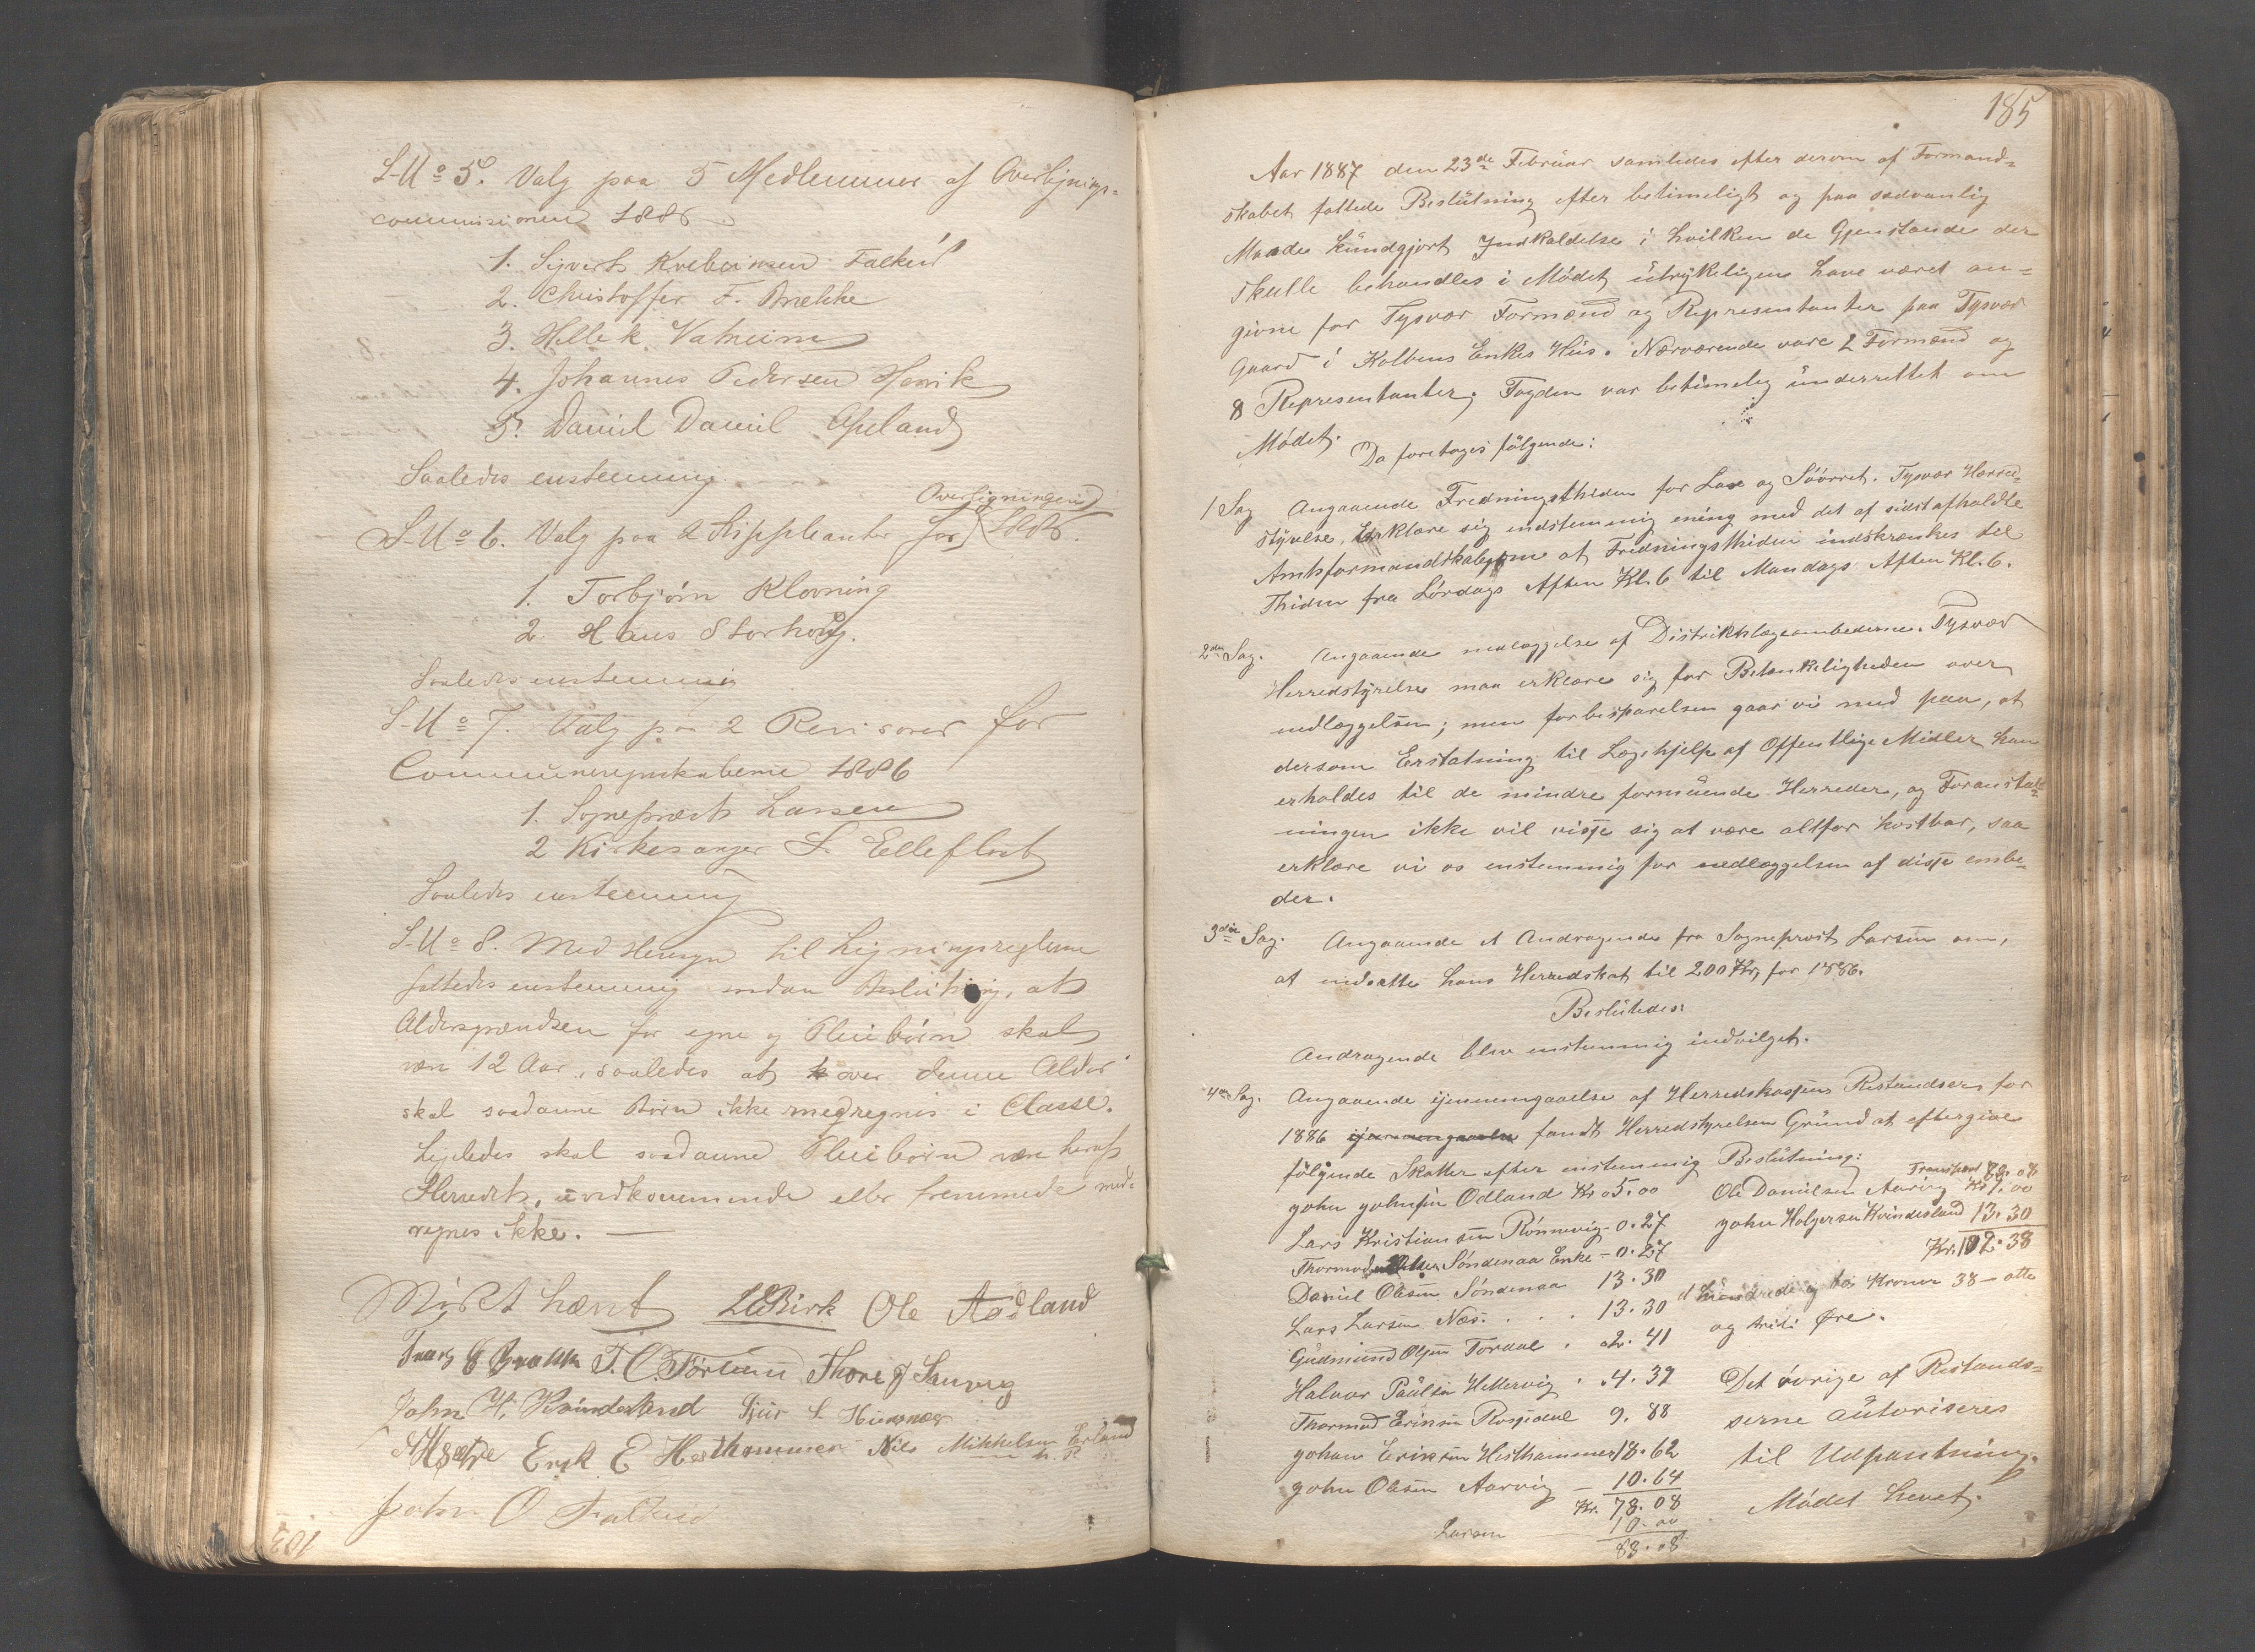 S-No 5. Valg paa 5 Medlemmer af Overlignings-
commissionen 1886
1. Sivert Falkeid
2. Christoffer F. Brekke
3. Helle k. Vatneim
4. Johannes Pedersen Hervik
5. Daniel Daniel Apeland
Saaledes enstemmig.
Overligningen
S-No 6. Valg paa 2 Suppleanter for 1886.
1. Torbjörn Klovning
2. Hans Storhoug.
Saaledes enstemmig
S-No 7. Valg på 2 Revisorer for
Communeregnskaberne 1886
1. Sogneprest Larsen
2 Kirkesanger S. Elleflaat
Saaledes enstemmig
S-No 8. Med Hensyn til Ligningsreglerne
fattedes enstemmig sodan Beslutning, at
Aldersgrændsen for egne og Pleiebörn skal
være 12 Aar, saaledes at over denne Alder
skal saadanne Börn ikke medregnes i Classe.
Ligeledes skal saadanne Pleiebörn være
Herredet, uvedkommende eller fremmede med-
regnes ikke.
Mödet hævet LEBirk Ole Aadland
T. C. Förland Thore J
John H. Kvindesland S.
Erik E Hesthammer Nils Mikkelsen Erland
John O Falkeid
185
Aar 1887 den 23de Februar samledes efter derom af Formand-
skabet fattede Beslutning efter betimeligt og paa sædvanlig
Maade kundgjort Indkaldelse i hvilken de Gjenstande der
skulle behandles i Mödet utrykeligen have været an-
givne for Tysvær Formænd og Representanter paa Tysvær
Gaard i Kolbens Enkes Hus. Nærværende vare 2 Formænd og
8 Representanter. Fogden var betimelig underrettet om
Mödet.
Da foretoges fölgende:
1 Sag Angaaende Fredningsthiden for Lax og Söörret. Tysvær Herred-
styrelse Erklære sig endstemmig ening med det af sidst afholdte
Amtsformandskab at Fredningsthiden indskrænkes til
Thiden fra Lördags Aften Kl. 6 til Mandags Aften Kl. 6.
2den Sag. Angaaende nedlæggelse af Distriktslægeembederne. Tysvær
Herredstyrelse maa erklære sig for Betænkeligheden over
nedlæggelsen; men forbesparelsen gaar vi med paa, at
dersom Erstatning til Lægehjelp af Offentlige Midler kan
erholdes til de mindre formuende Herreder, og Foranstalt-
ningen ikke vil visse sig at være altfor kostbar, saa
erklære vi os enstemmig for nedlæggelsen af disse embe-
der.
3die Sag. Angaaende et Andragende fra Sogneprest Larsen om,
at nedsætte hans Herredskat til 200 Kr, for 1886.
Beslutedes:
Andragende blev enstemmig indvilget.
4de Sag. Angaaende ijennemgaaelse af Herredskassens Restandser for
1886 ijennemgaaelse fandt Herredstyrelsen Grund at eftergive
fölgende Skatter efter enstemmig Beslutning:
John Johnsen Odland Kr 05.00
Lars Kristiansen Rönnevig - 0.27
Thormod Söndenaa Enke - 0.27
Daniel Olesen Söndenaa 13.30
Lars Larsen Næs. . . . 13.30
Gudmund Olsen Tordal . 2.41
Halvor Paulsen Hettervig . 4.39
Thormod Eriksen Rossedal 9.88
Johan Eriksen Hesthammer 18.62
John Olesen Aarvig - 10.64
Kr. 78.08
Larsen 10.00
88.08
Transport 88.08
Ole Danielsen Aarvig Kr 1.00
John Holgersen Kvindesland 13.30
Kr. 102.38
et Hundrede og to Kroner 38 - otte
og tredi Öre.
Det övrige af Restand-
serne autoriseres
til Udpantning.
Mödet hevet.